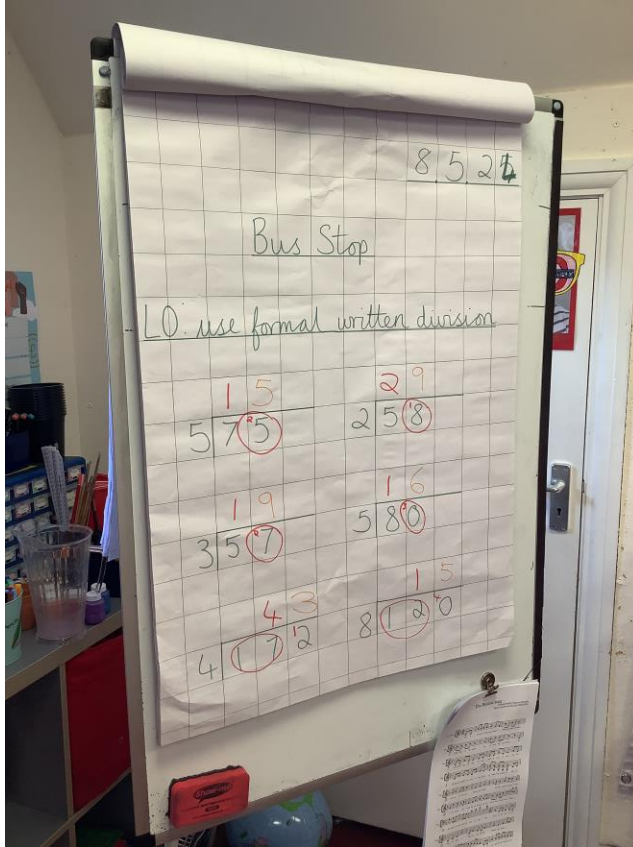 8.5.24
Bus Stop
LO: use formal written division
1 5
5 7 ²5
2 9
2 5 ¹8
1 9
3 5 ²7
1 6
5 8 ³0
4 3
4 1 7 ¹2
1 5
8 1 2 ⁴0
Show-me